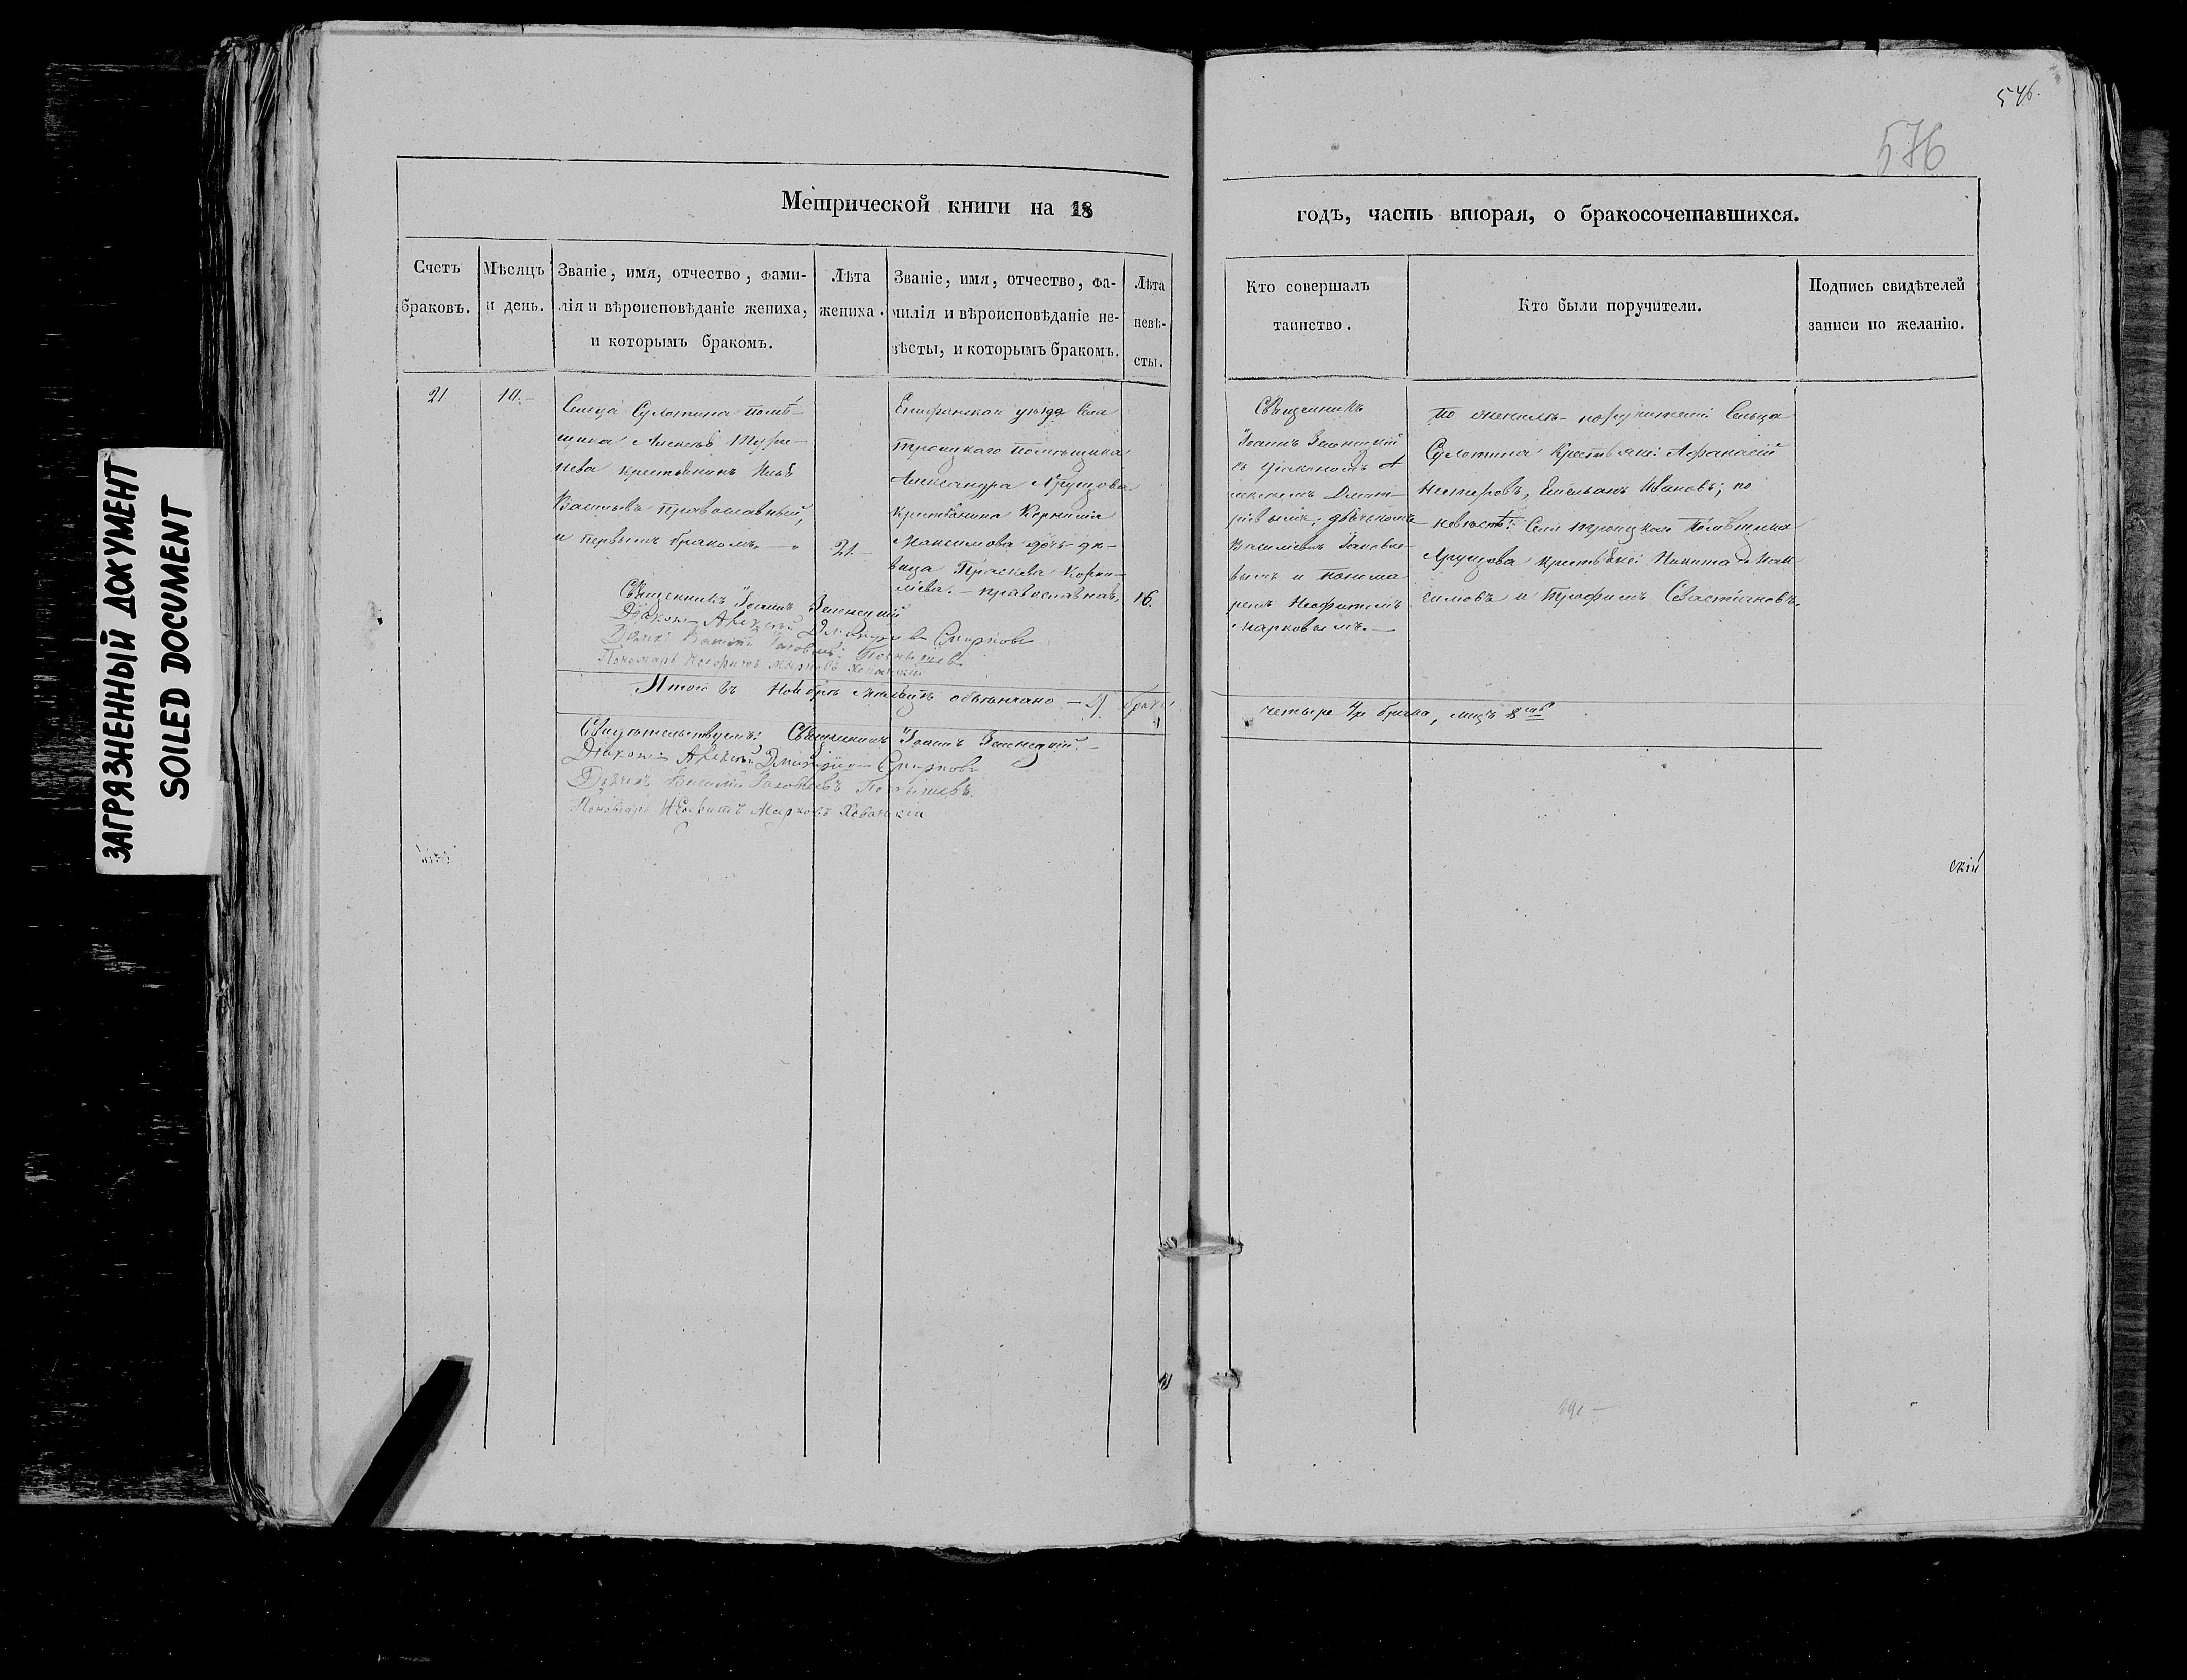 546.
576
ЗАГРЯЗНЕННЫЙ ДОКУМЕНТ
SOILED DOCUMENT
Метрической книги на 18
годъ, часть вторая, о бракосочетавшихся.
Счетъ браковъ.
Мѣсяцъ и день.
Званіе, имя, отчество, фами-
лія и вѣроисповѣданіе жениха,
и которымъ бракомъ.
Лѣта жениха.
Званіе, имя, отчество, фа-
милія и вѣроисповѣданіе не-
вѣсты, и которымъ бракомъ.
Лѣта невѣ-
сты.
Кто совершалъ
таинство.
Кто были поручители.
Подпись свидѣтелей
записи по желанію.
21.
10.
Сельца Суломина помѣ-
щика Алексѣя
нева крестьянинъ
православный,
и первымъ бракомъ.
21.
Епифанскаго уѣзда Села
Троицкаго помѣщика
Александра Хрущова
крестьянина Корнилія
Максимова дочь дѣ-
вица Праскева Корни-
ліева. православная,
16.
Священникъ
Іоаннъ Зеленецкій
съ діакономъ А
лексѣемъ Дмит-
ріевымъ, дьячкомъ
Василіемъ Іаковле-
вымъ и понома
ремъ Неофитомъ
Марковымъ.
по женихѣ поручители Сельца
Суломина крестьяне: Афанасій
Нестеровъ, Емельянъ Ивановъ; по
невѣстѣ: Села Троицкаго помѣщика
Хрущова крестьяне: Никита Мак
симовъ и Трофимъ Севастіановъ.
Священникъ Іоаннъ Зеленецкій
Діаконъ Алексѣй Дмитріевъ Смирновъ
Дьячекъ Василій Іаковлевъ
Пономарь Неофитъ Марковъ Хованскій
Итого въ Ноябрѣ мѣсяцѣ обвѣнчано 4 брака
четыре 4ре брака, лицъ 8мь
Свидѣтельствуемъ: Священникъ Іоаннъ Зеленецкій.
Діаконъ Алексѣй Дмитріевъ Смирновъ
Дьячекъ Василій Іаковлевъ
Пономарь Неофитъ Марковъ Хованскій
скій